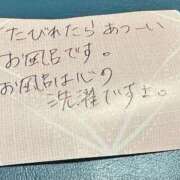 たびれたら あつーい
お風呂です。
お風呂は心の
洗濯ですよ。